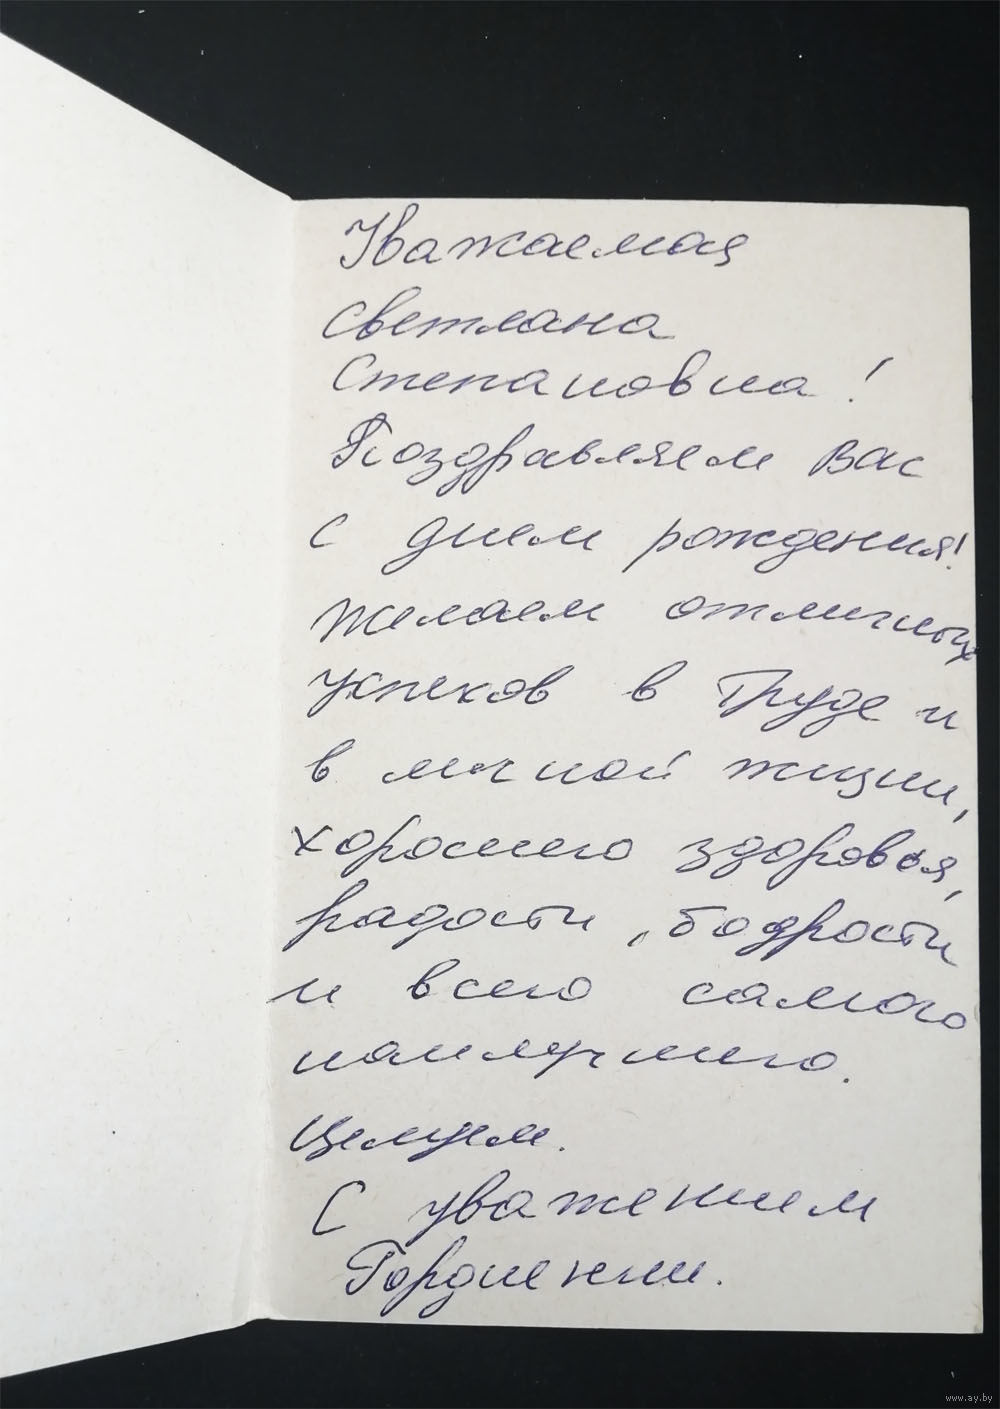 Уважаемая
Светлана
Степановна!
Поздравляем Вас
с днем рождения!
Желаем отличных
успехов в труде и
в личной жизни,
хорошего здоровья,
радости, бодрости
и всего самого
наилучшего.
Целуем.
С уважением
www.ay.by